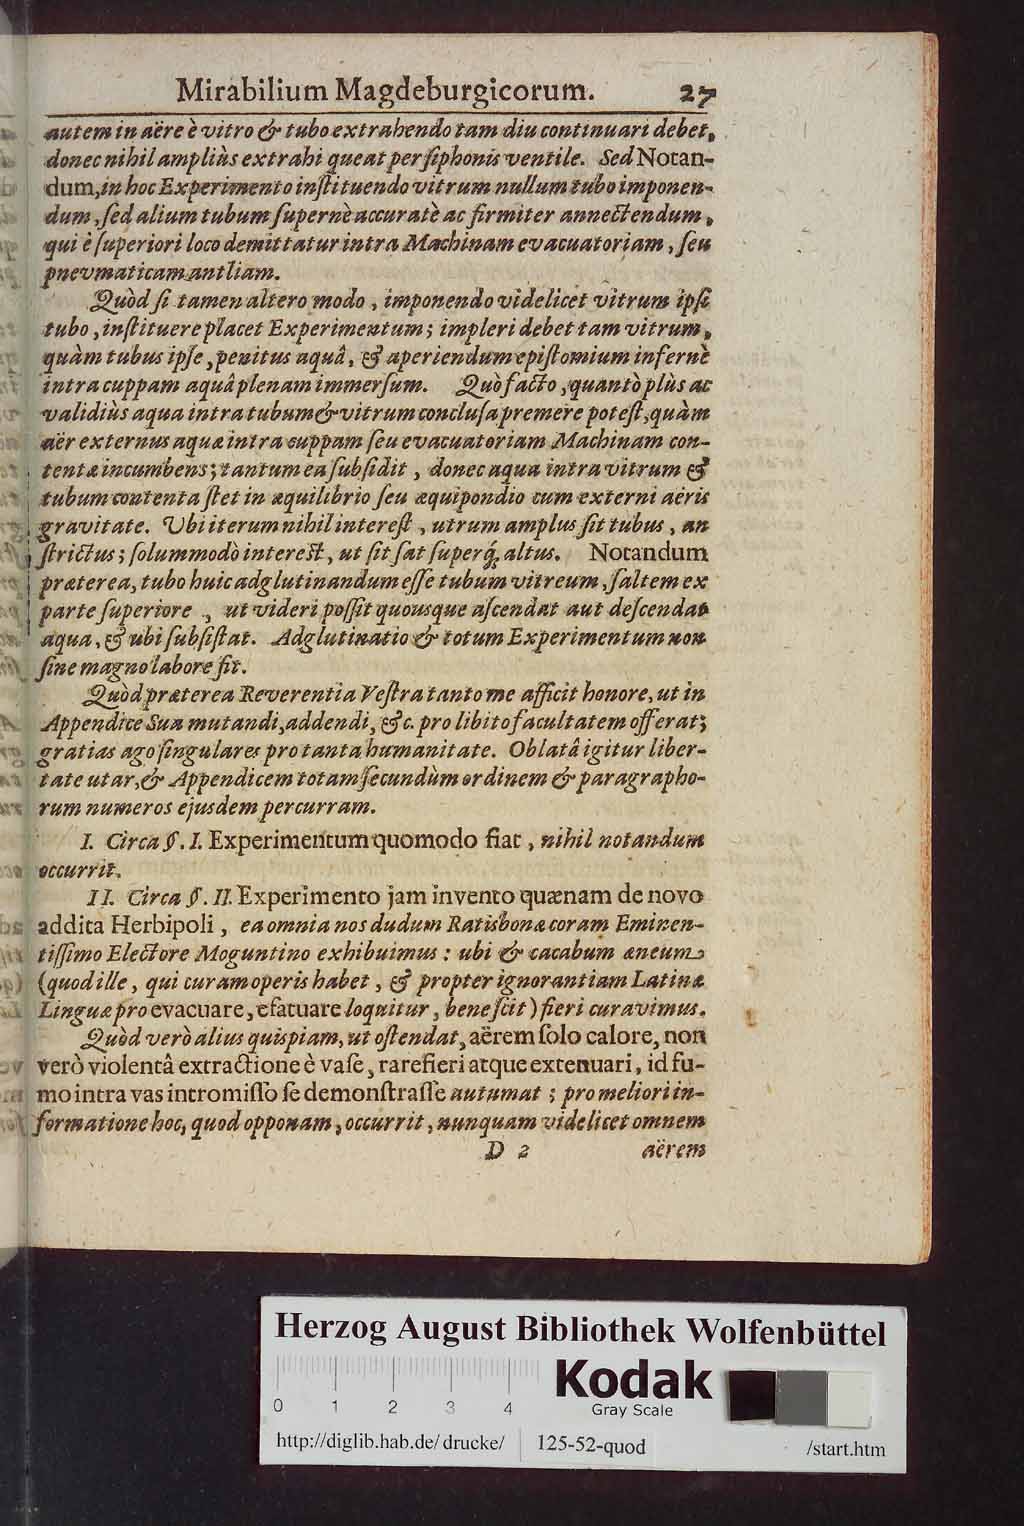 Mirabilium Magdeburgicorum. 27
autem in aëre è vitro & tubo extrahendo tam diu continuari debet,
donec nihil ampliùs extrahi queat per ſiphonis ventile. Sed Notan-
dum, in hoc Experimento inſtituendo vitrum nullum tubo imponen-
dum, ſed alium tubum ſupernè accuratè ac firmiter annectendum,
qui è ſuperiori loco demittatur intra Machinam evacuatoriam, ſeu
pnevmaticam antliam.
Quòd ſi tamen altero modo, imponendo videlicet vitrum ipſi
tubo, inſtituere placet Experimentum; impleri debet tam vitrum,
quàm tubus ipſe, penitus aquâ, & aperiendum epiſtomium infernè
intra cuppam aquâ plenam immerſum. Quò facto, quantò plùs ac
validiùs aqua intra tubum & vitrum concluſa premere poteſt, quàm
aër externus aquæ intra cuppam ſeu evacuatoriam Machinam con-
tentæ incumbens; tantum ea ſubſidit, donec aqua intra vitrum &
tubum contenta ſtet in æquilibrio ſeu æquipondio cum externi aëris
gravitate. Ubi iterum nihil intereſt, utrum amplus ſit tubus, an
ſtrictus; ſolummodò intereſt, ut ſit ſat ſuperq́; altus. Notandum
præterea, tubo huic adglutinandum eſſe tubum vitreum, ſaltem ex
parte ſuperiore, ut videri poſſit quousque aſcendat aut deſcendat
aqua, & ubi ſubſiſtat. Adglutinatio & totum Experimentum non
ſine magno labore fit.
Quòd præterea Reverentia Veſtra tanto me afficit honore, ut in
Appendice Sua mutandi, addendi, &c. pro libito facultatem offerat;
gratias ago ſingulares pro tanta humanitate. Oblatâ igitur liber-
tate utar, & Appendicem totam ſecundùm ordinem & paragrapho-
rum numeros ejusdem percurram.
I. Circa §. I. Experimentum quomodo fiat, nihil notandum
occurrit.
II. Circa §. II. Experimento jam invento quænam de novo
addita Herbipoli, ea omnia nos dudum Ratisbonæ coram Eminen-
tiſſimo Electore Moguntino exhibuimus: ubi & cacabum æneum
(quod ille, qui curam operis habet, & propter ignorantiam Latinæ
Linguæ pro evacuare, efatuare loquitur, beneſcit) fieri curavimus.
Quòd verò alius quispiam, ut oſtendat, aërem ſolo calore, non
verò violentâ extractione è vaſe, rarefieri atque extenuari, id fu-
mo intra vas intromiſſo ſe demonſtraſſe autumat; pro meliori in-
formatione hoc, quod opponam, occurrit, nunquam videlicet omnem
D 2 aërem
Herzog August Bibliothek Wolfenbüttel
0 1 2 3 4
Kodak
Gray Scale
http://diglib.hab.de/drucke/ 125-52-quod /start.htm